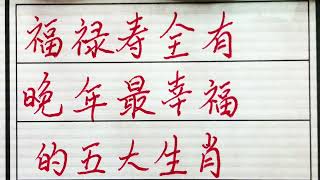 福禄寿全有
晚年最幸福
的五大生肖